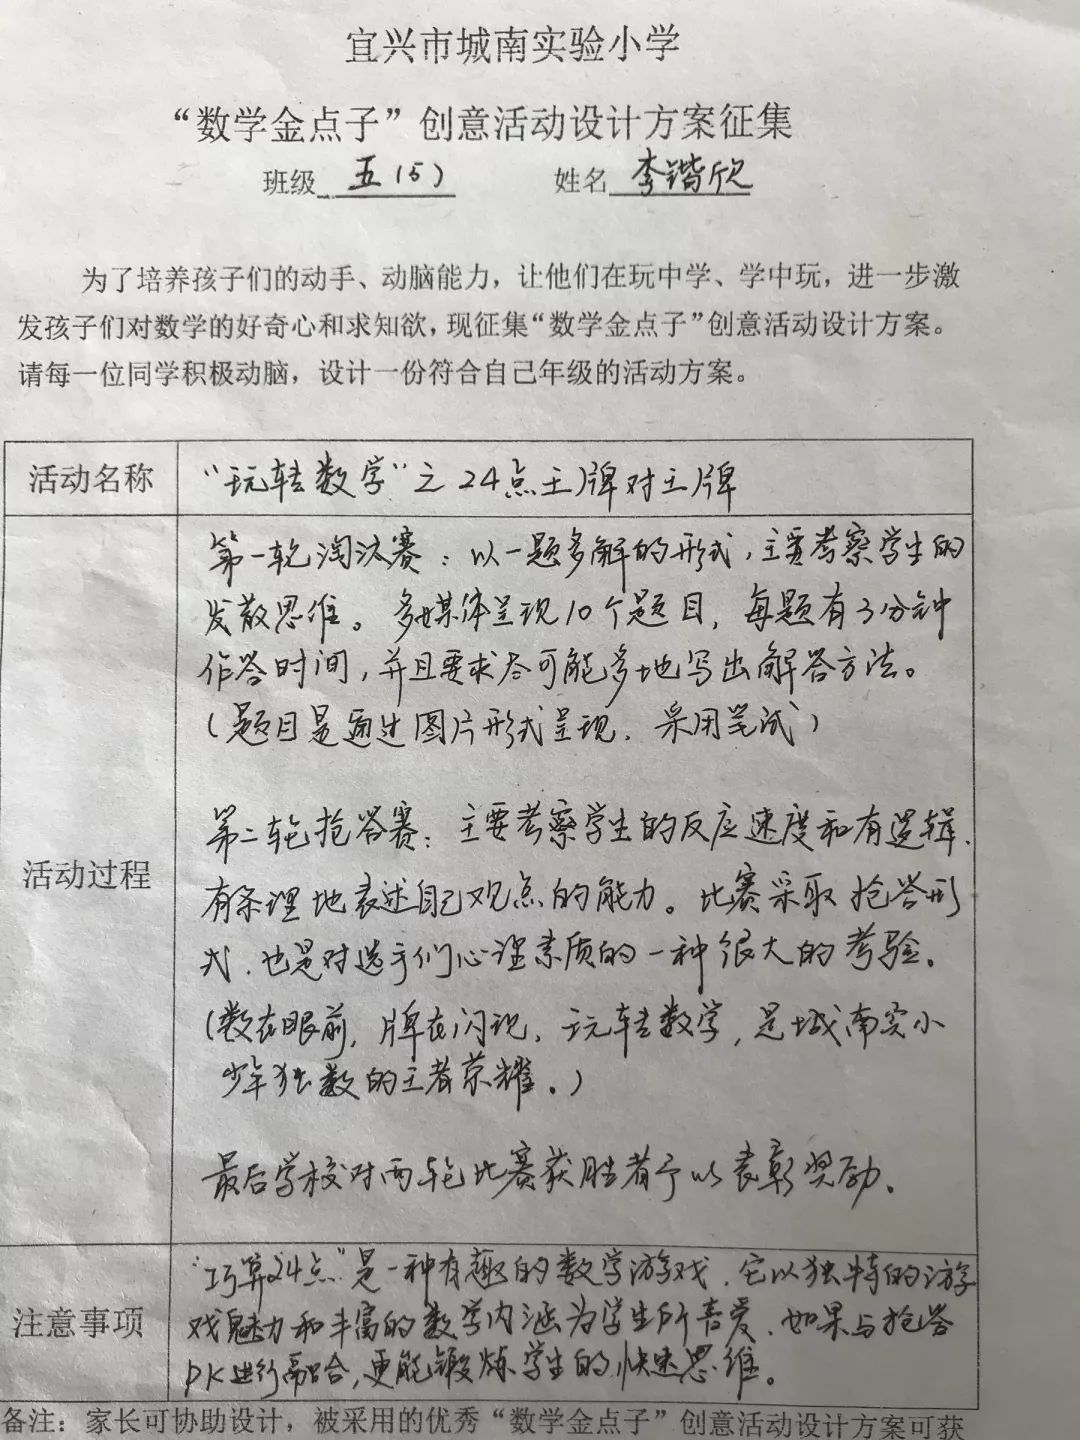 宜兴市城南实验小学
“数学金点子”创意活动设计方案征集
班级 五(5) 姓名 李锴欣
为了培养孩子们的动手、动脑能力，让他们在玩中学、学中玩，进一步激
发孩子们对数学的好奇心和求知欲，现征集“数学金点子”创意活动设计方案。
请每一位同学积极动脑，设计一份符合自己年级的活动方案。
活动名称 “玩转数学”之24点王牌对王牌
第一轮淘汰赛：以一题多解的形式，主要考察学生的
发散思维。多媒体呈现10个题目，每题有3分钟
作答时间，并且要求尽可能多地写出解答方法。
(题目是通过图片形式呈现，采用笔试)
第二轮抢答赛：主要考察学生的反应速度和有逻辑、
活动过程
有条理地表述自己观点的能力。比赛采取抢答形
式，也是对选手们心理素质的一种很大的考验。
(数在眼前，牌在闪现，玩转数学，是城南实小
少年独数的王者荣耀。)
最后学校对两轮比赛获胜者予以表彰奖励。
注意事项
“巧算24点”是一种有趣的数学游戏，它以独特的游
戏魅力和丰富的数学内涵为学生所喜爱，如果与抢答
PK进行融合，更能锻炼学生的快速思维。
备注：家长可协助设计，被采用的优秀“数学金点子”创意活动设计方案可获